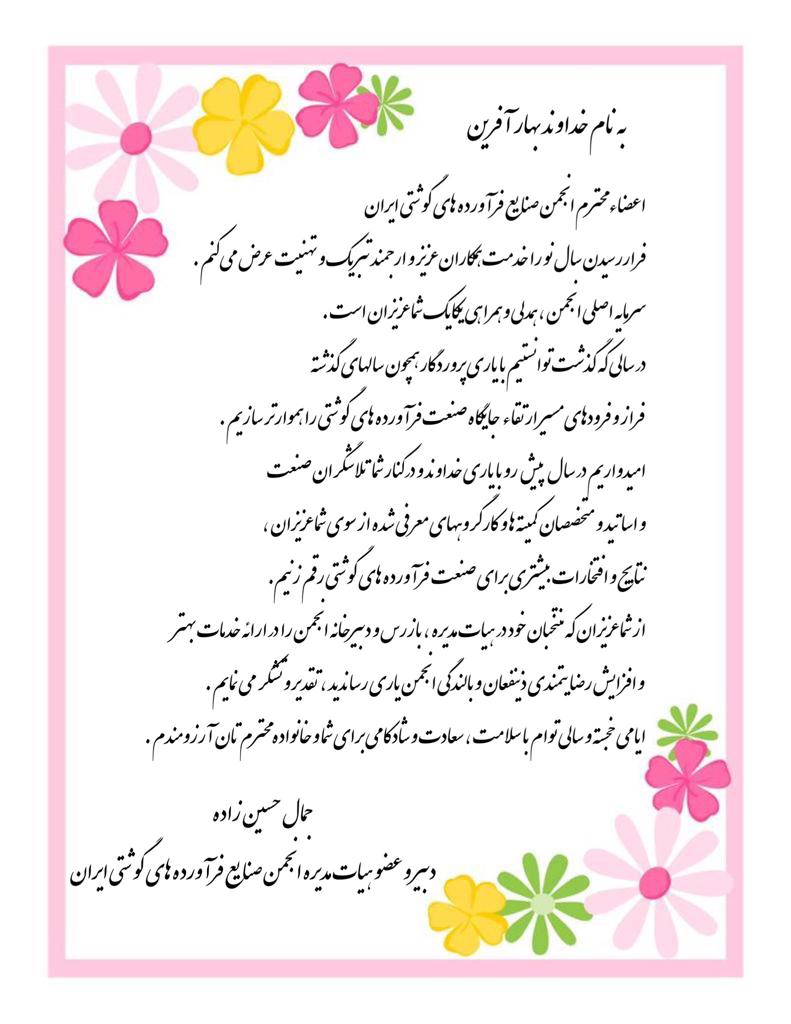 به نام خداوند بهار آفرین
اعضاء محترم انجمن صنایع فرآورده های گوشتی ایران
فرا رسیدن سال نو را خدمت همکاران عزیز و ارجمند تبریک و تهنیت عرض می کنم .
سرمایه اصلی انجمن ، همدلی و همراهی یکایک شما عزیزان است .
در سالی که گذشت توانستیم با یاری پروردگار همچون سالهای گذشته
فراز و فرودهای مسیر ارتقاء جایگاه صنعت فرآورده های گوشتی را هموارتر سازیم .
امیدواریم در سال پیش رو با یاری خداوند و در کنار شما تلاشگران صنعت
و اساتید و متخصصان کمیته ها و کارگروههای معرفی شده از سوی شما عزیزان ،
نتایج و افتخارات بیشتری برای صنعت فرآورده های گوشتی رقم زنیم .
از شما عزیزان که منتخبان خود در هیات مدیره ، بازرس و دبیرخانه انجمن را در ارائه خدمات بهتر
و افزایش رضایتمندی ذینفعان و بالندگی انجمن یاری رساندید ، تقدیر و تشکر می نمایم .
ایامی خجسته و سالی توام با سلامت ، سعادت و شادکامی برای شما و خانواده محترم تان آرزومندم .
جمال حسین زاده
دبیر و عضو هیات مدیره انجمن صنایع فرآورده های گوشتی ایران